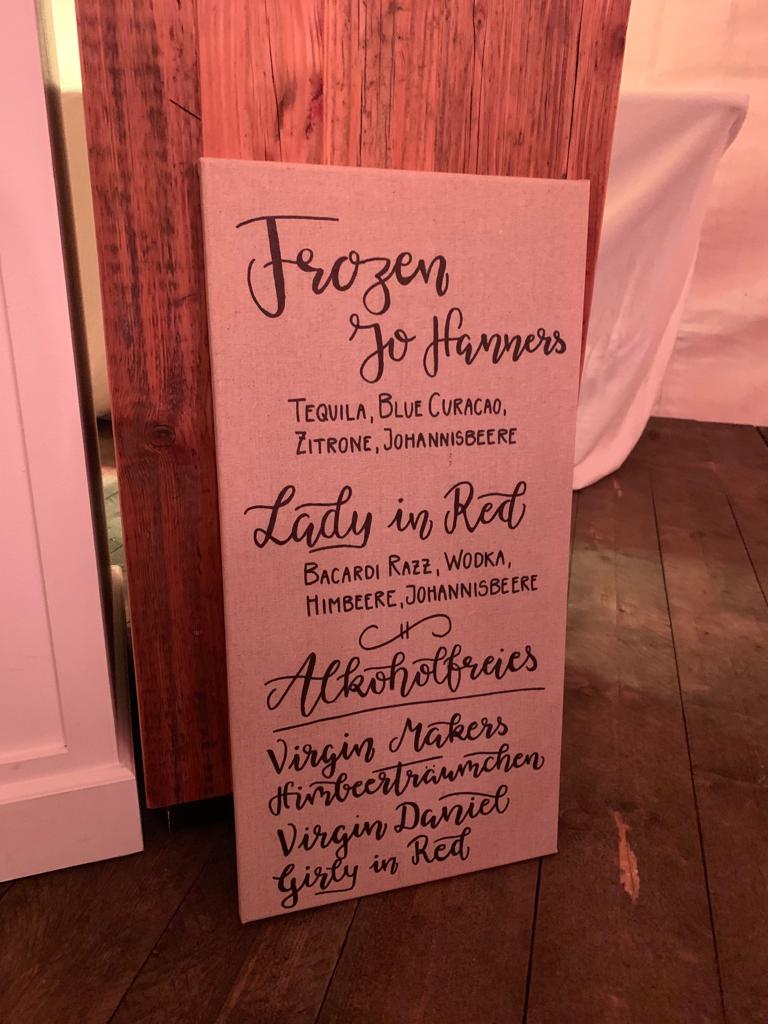 Frozen
Jo Hanners
TEQUILA, BLUE CURACAO,
ZITRONE, JOHANNISBEERE
Lady in Red
BACARDI RAZZ, WODKA,
HIMBEERE, JOHANNISBEERE
Alkoholfreies
Virgin Makers
Himbeerträumchen
Virgin Daniel
Girly in Red